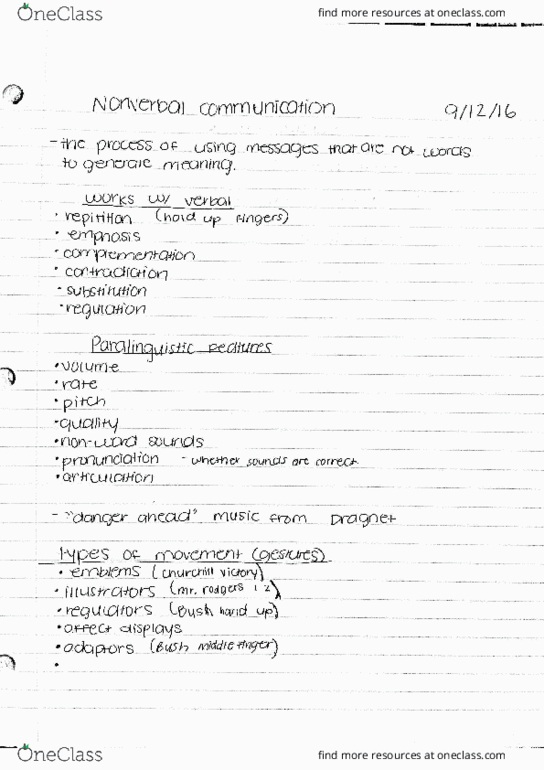 OneClass
find more resources at oneclass.com
Nonverbal communication 9/12/16
- the process of using messages that are not words
to generate meaning.
works w/ verbal
• repitition (hold up fingers)
• emphasis
• complementation
• contradiction
• substitution
• regulation
Paralinguistic features
• volume
• rate
• pitch
• quality
• non-word sounds
• pronunciation - whether sounds are correct
• articulation
- "danger ahead" music from Dragnet
Types of movement (gestures)
• emblems (churchill victory)
• illustrators (mr. rodgers 1 2)
• regulators (Bush hand up)
• affect displays
• adaptors (Bush middle finger)
•
OneClass
find more resources at oneclass.com